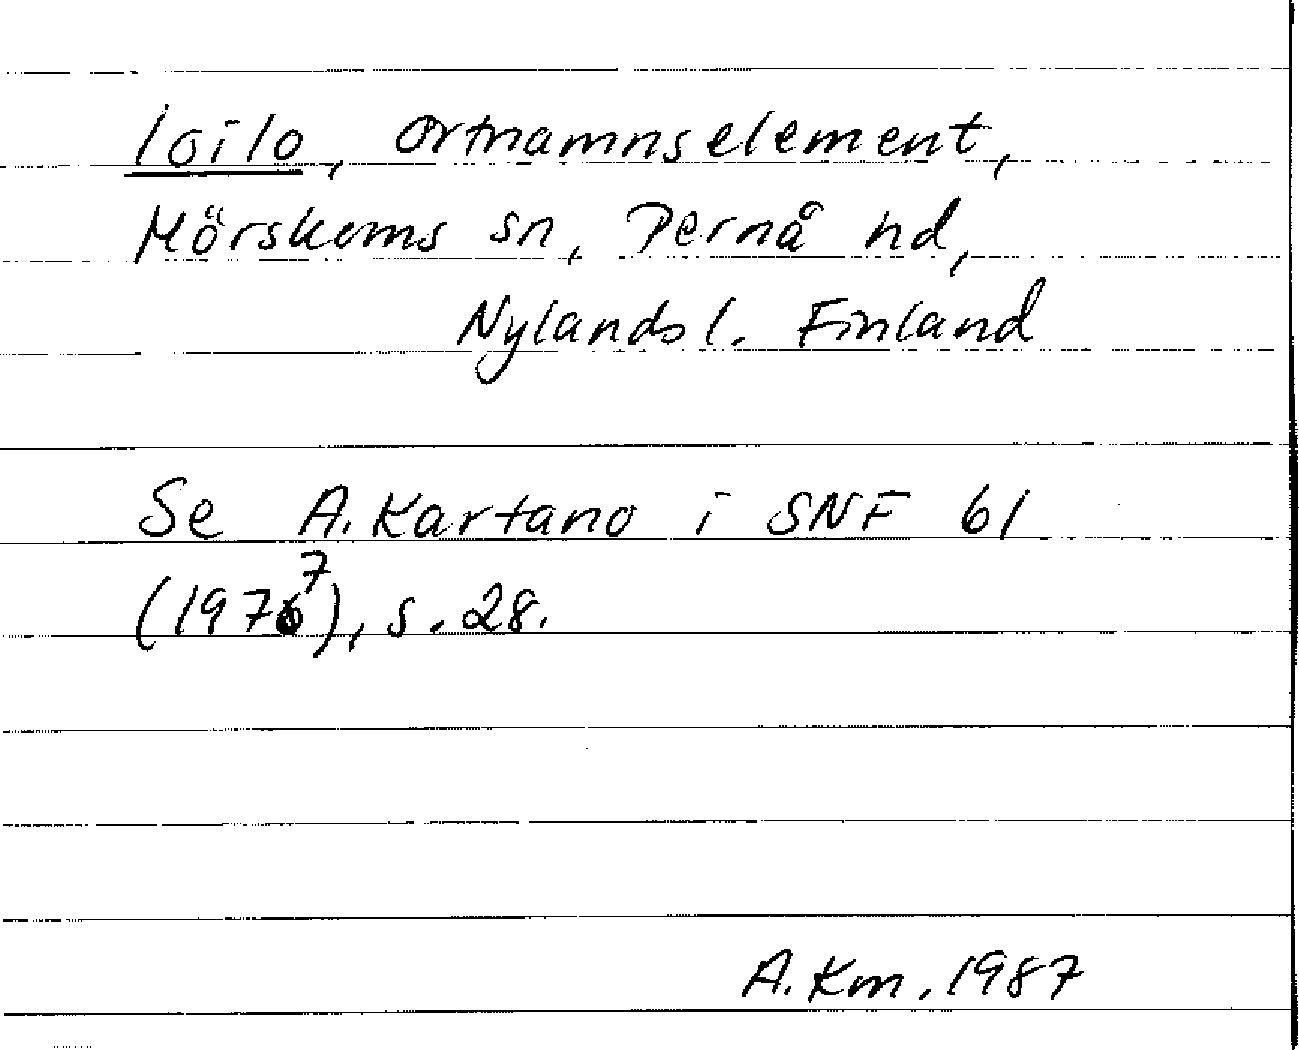 loilo, ortnamnselement,
Mörskoms sn, Pernå hd,
Nylands l. Finland
Se A. Kartano i SNF 61
(1977), s. 28.
A. Km. 1987